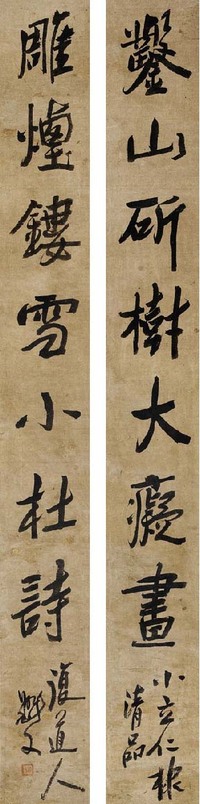 鑿山斫樹大癡畫
小立仁棣
清品
雕煙鏤雪小杜詩
道人